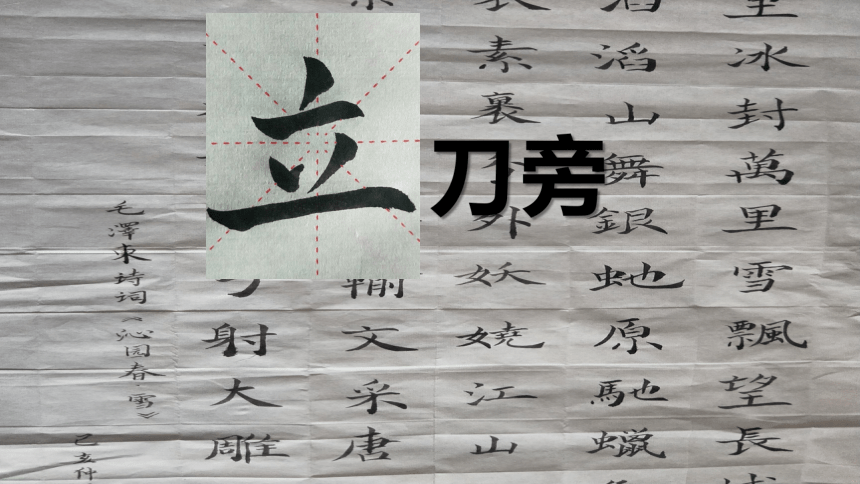 立刀旁
冰封萬里雪飄望長
滔滔山舞銀虵原馳蠟
素裹分外妖嬈江山
輸文采唐
射大雕
毛澤東诗词《沁园春·雪》
己亥仲